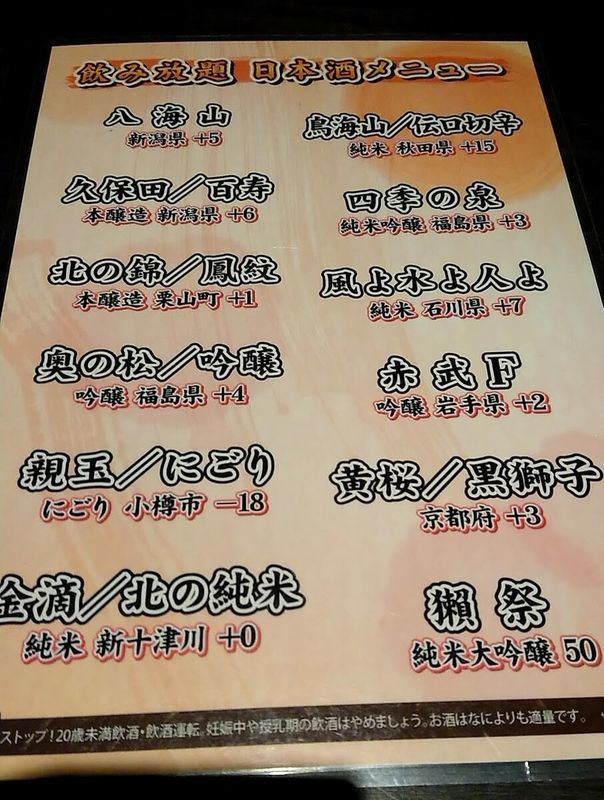 飲み放題 日本酒メニュー
八海山
新潟県 +5
久保田／百寿
本醸造 新潟県 +6
北の錦／鳳紋
本醸造 栗山町 +1
奥の松／吟醸
吟醸 福島県 +4
親玉／にごり
にごり 小樽市 −18
金滴／北の純米
純米 新十津川 +0
鳥海山／伝口切辛
純米 秋田県 +15
四季の泉
純米吟醸 福島県 +3
風よ水よ人よ
純米 石川県 +7
赤武F
吟醸 岩手県 +2
黄桜／黒獅子
京都府 +3
獺祭
純米大吟醸 50
ストップ！20歳未満飲酒・飲酒運転。妊娠中や授乳期の飲酒はやめましょう。お酒はなによりも適量です。